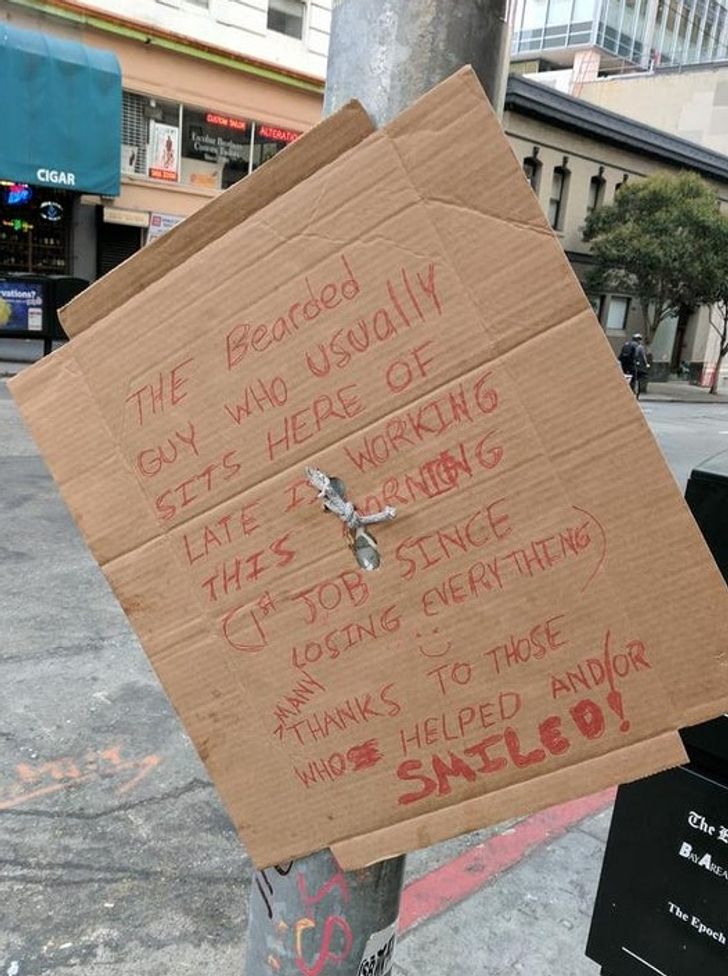 CIGAR
CUSTOM TAILOR
ALTERATIO
vations?
THE Bearded
GUY WHO USUALLY
SITS HERE OF
LATE IS WORKING
THIS MORNING
(1st JOB SINCE
LOSING EVERYTHING)
MANY
THANKS TO THOSE
WHO HELPED AND/OR
SMILED!
The E
BAY AREA
The Epoch